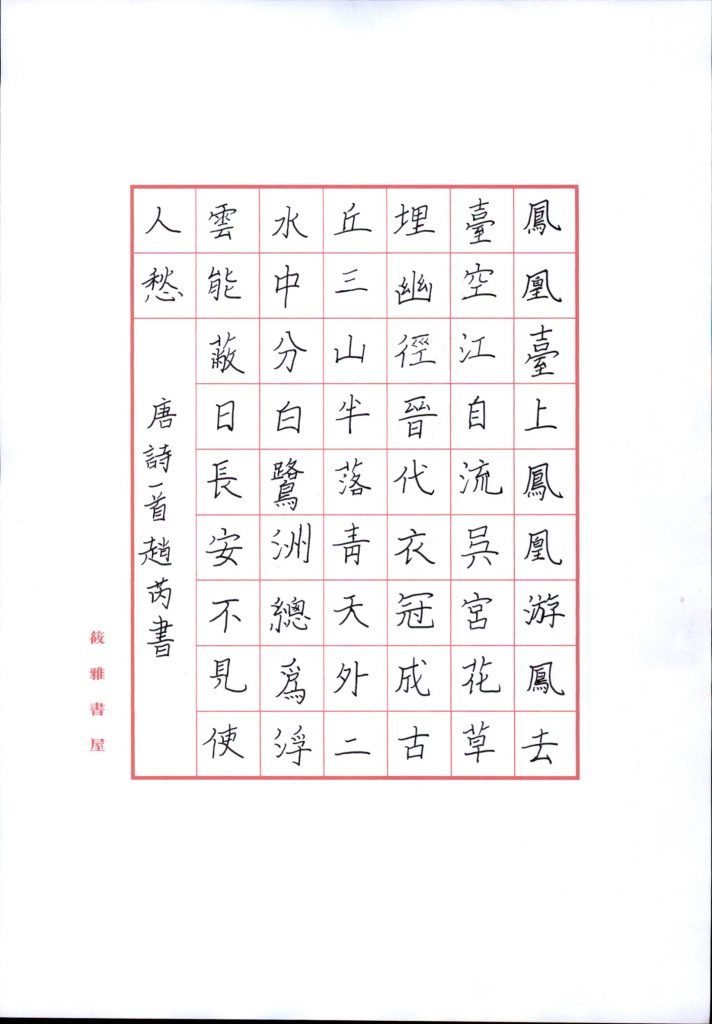 鳳凰臺上鳳凰游鳳去
臺空江自流吳宮花草
埋幽徑晉代衣冠成古
丘三山半落青天外二
水中分白鷺洲總爲浮
雲能蔽日長安不見使
人愁
唐詩一首趙芮書
筱雅書屋